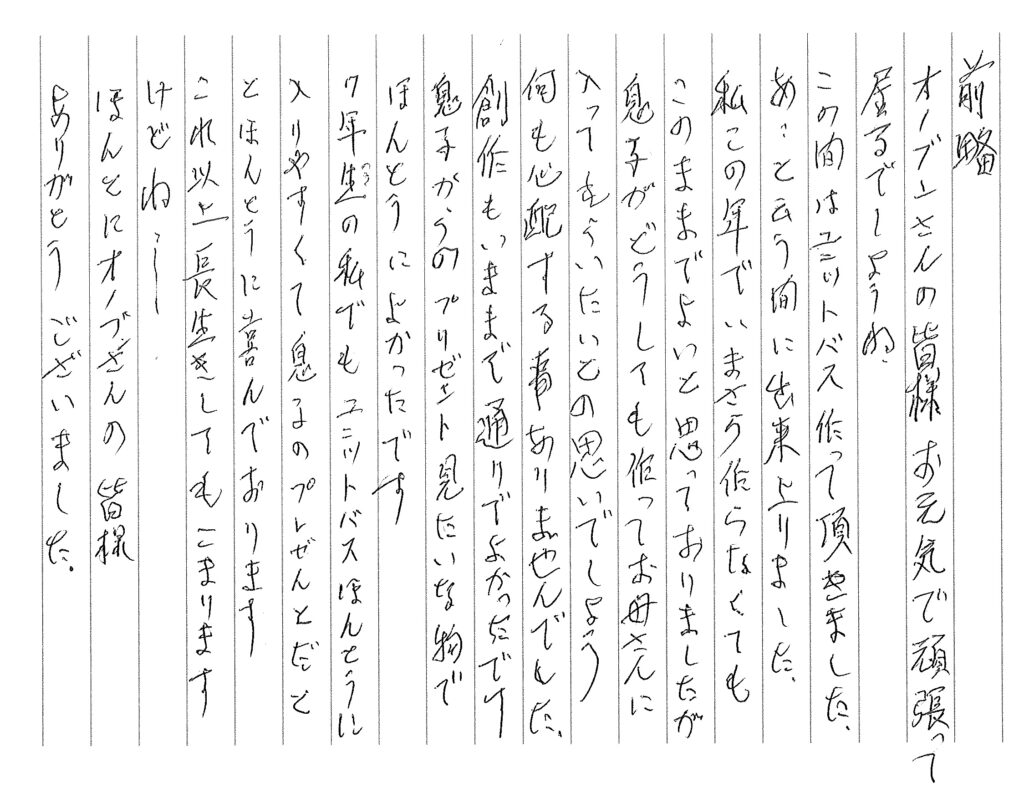 前略
オーブンさんの皆様お元気で頑張って
居るでしょうね
この間はユニットバス作って頂きました、
あっと云う間に出来上りました、
私この年でいまさら作らなくても
このままでよいと思っておりましたが
息子がどうしても作ってお母さんに
入ってもらいたいとの思いでしょう
何も心配する事ありませんでした、
創作もいままで通りでよかったです
息子からのプリゼント見たいな物で
ほんとうによかったです
年生の私でもユニットバスほんとうに
入りやすくて息子のプレぜんとだと
とほんとうに喜んでおります
これ以上長生きしてもこまります
けどねー
ほんとにオーブンさんの皆様
ありがとうございました。